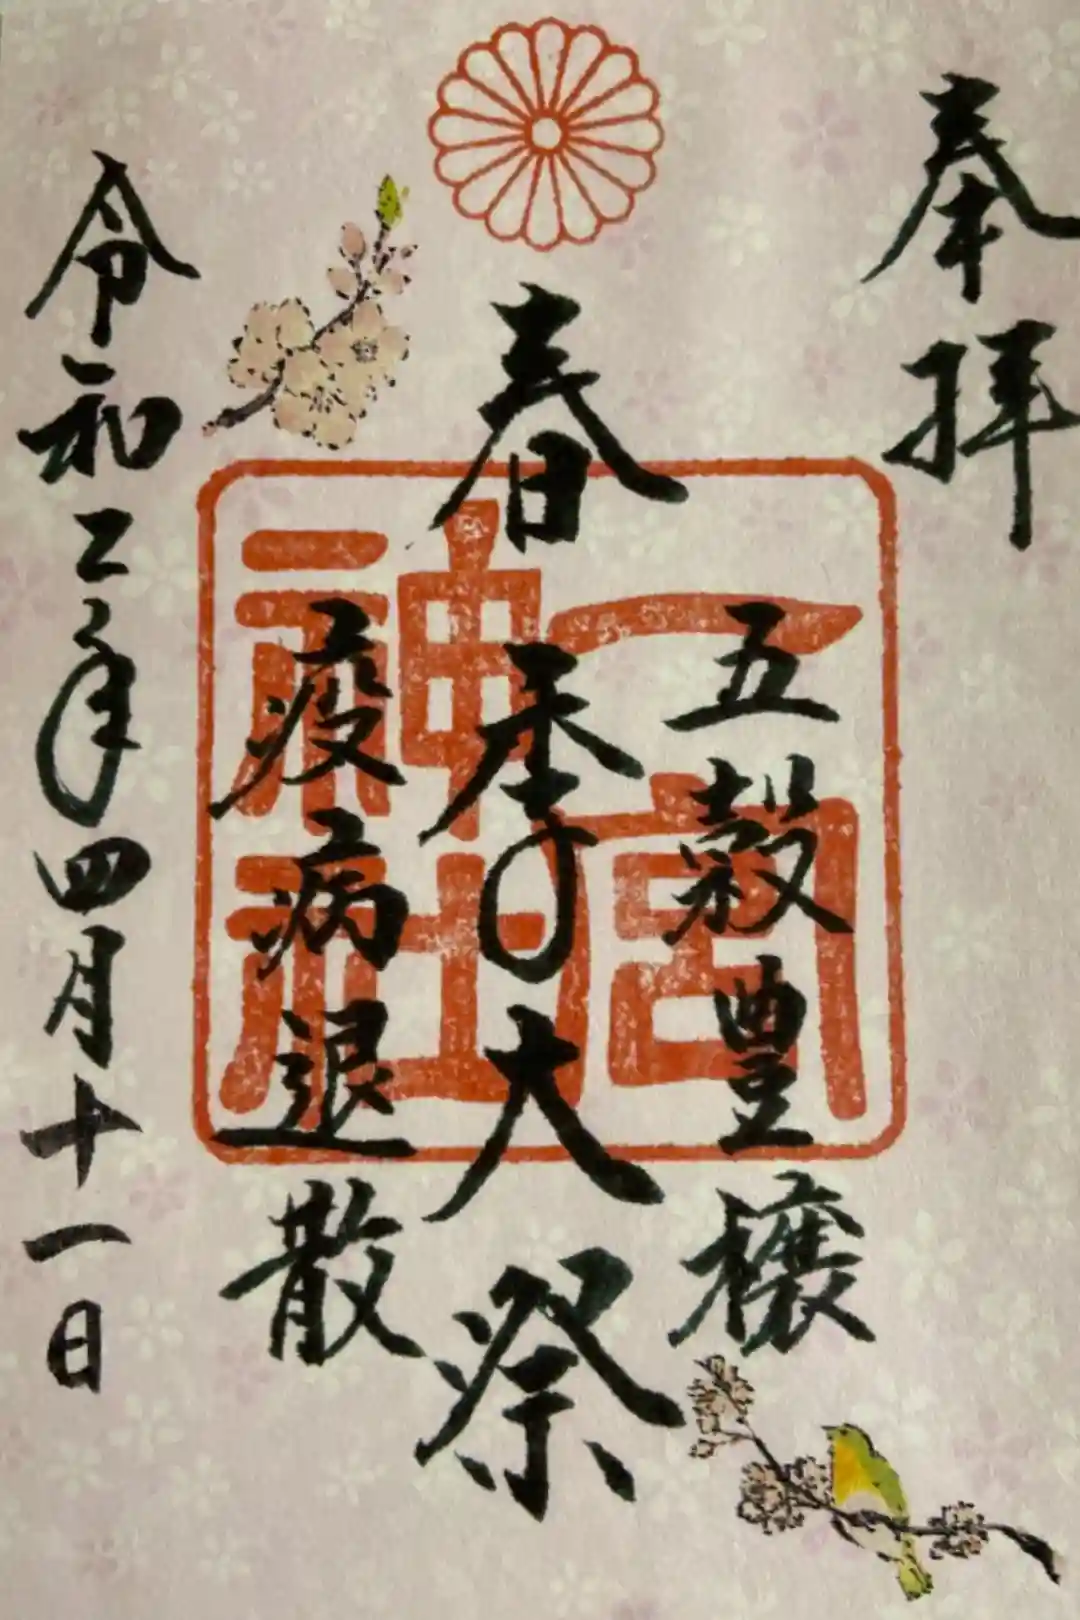 奉拝
五穀豊穣
春季大祭
疫病退散
一宮
神社
令和二年四月十一日